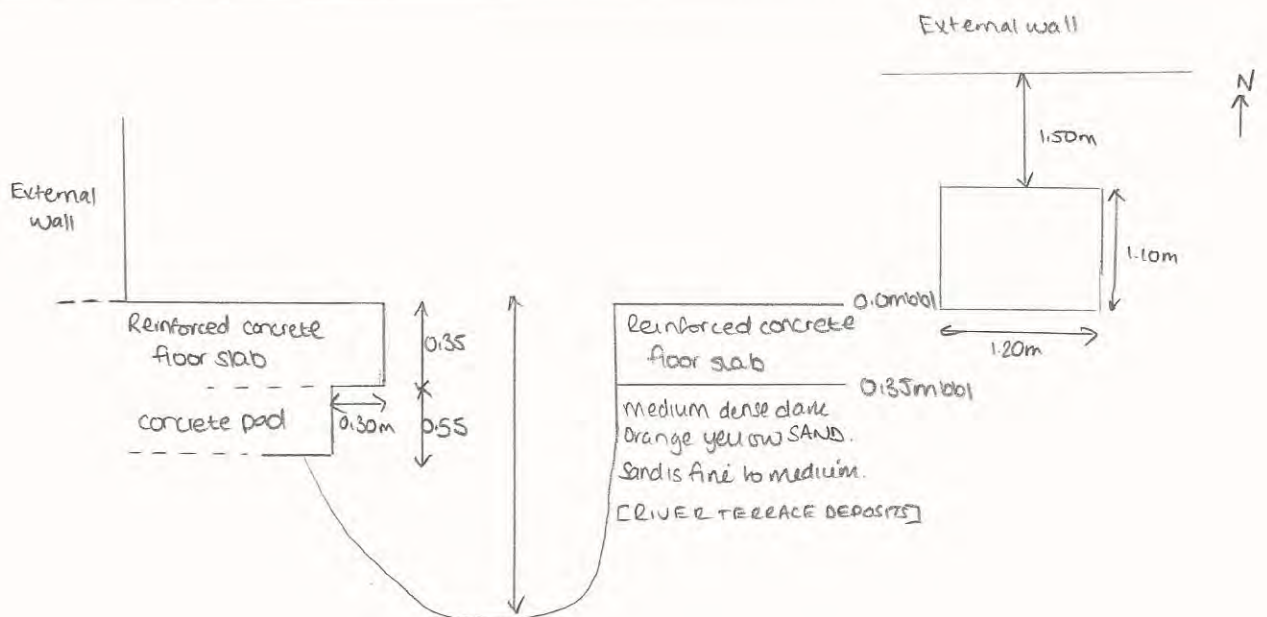 External wall
N
1.50m
1.10m
1.20m
External
wall
Reinforced concrete
floor slab
0.35
concrete pad
0.30m
0.55
0.0mbbl
Reinforced concrete
floor slab
0.35mbbl
medium dense dark
orange yellow SAND.
Sand is fine to medium.
[RIVER TERRACE DEPOSITS]